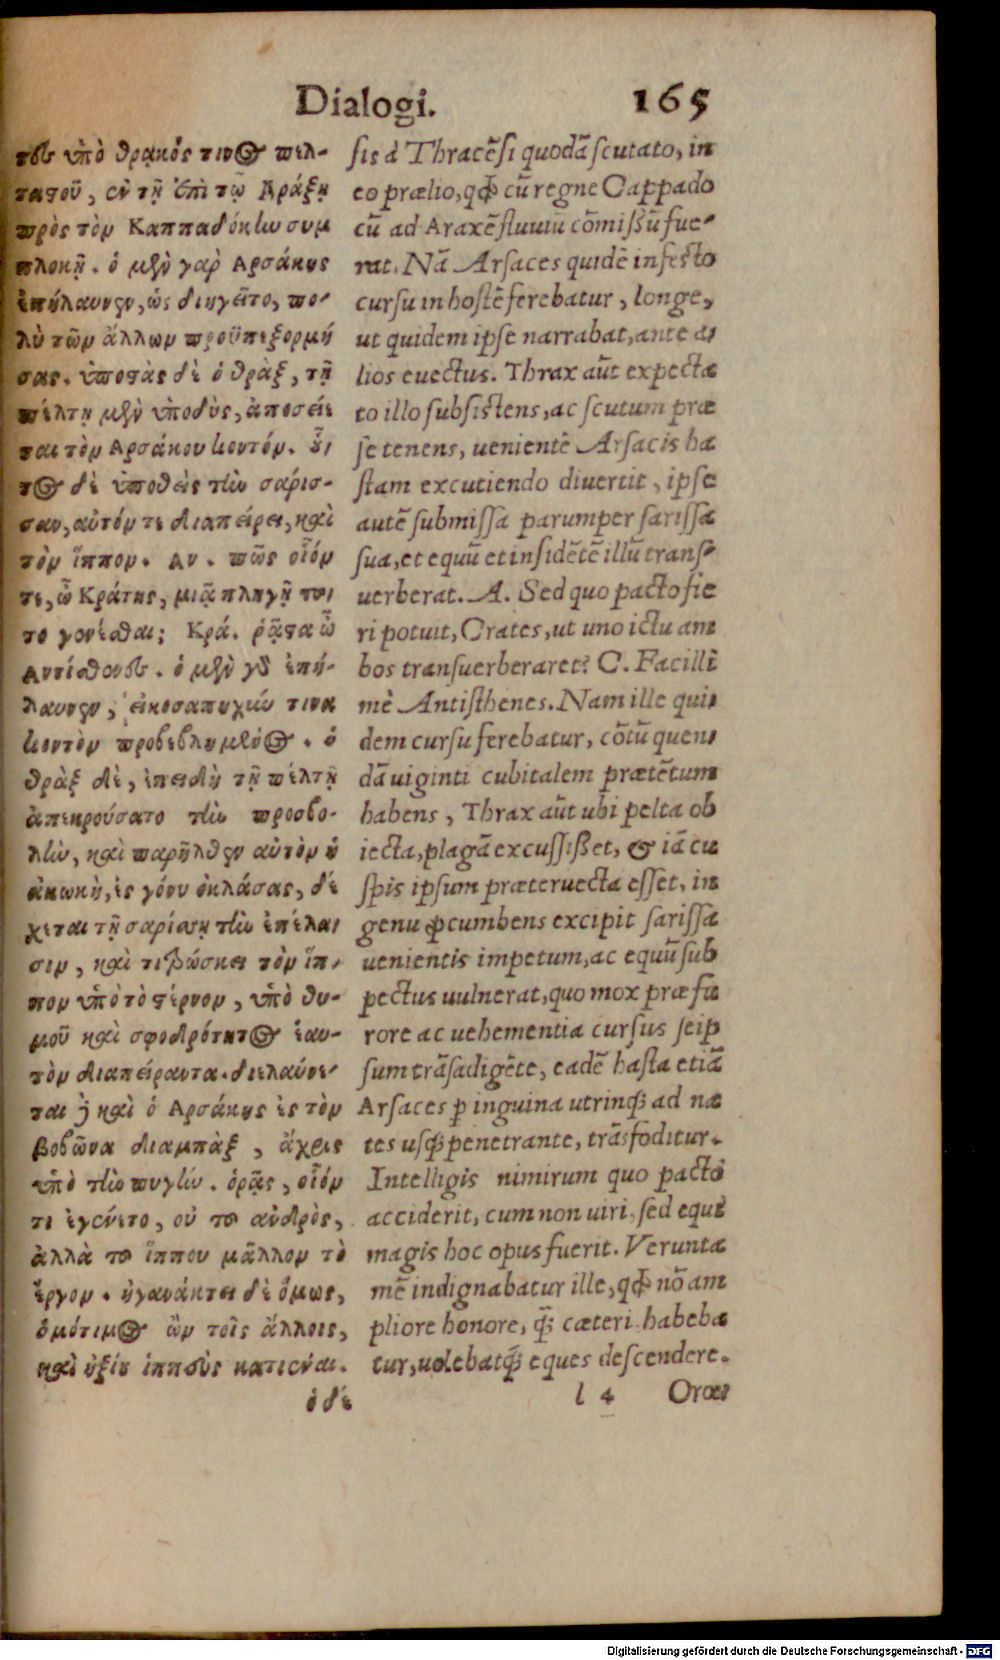 Dialogi. 165
τος ὑπὸ θρᾳκός τινος πελ-
ταστοῦ, ἐν τῇ ἐπὶ τῷ Ἀράξῃ
πρὸς τὸν Καππαδόκην συμ
πλοκῇ. ὁ μὲν γὰρ Αρσάκης
ἐπήλαυνεν, ὡς διηγεῖτο, πο-
λὺ τῶν ἄλλων προϋπεξορμή
σας. ὑποστὰς δὲ ὁ θρὰξ, τῇ
πέλτῃ μὲν ὑποδὺς, ἀποσείε
ται τὸν Αρσάκου κοντόν.
δὲ ὑποθεὶς τὴν σάρισ-
σαν, αὐτόν τε διαπείρει, καὶ
τὸν ἵππον. Αν. πῶς οἷόν
τε, ὦ Κράτης, μιᾷ πληγῇ τοῦ
το γενέσθαι; Κρά. ῥᾷστα ὦ
Αντίσθενες. ὁ μὲν γὰρ ἐπή-
λαυνεν, εἰκοσαπηχύν τινα
κοντὸν προβεβλημένος. ὁ
θρὰξ δὲ, ἐπειδὴ τῇ πέλτῃ
ἀπεκρούσατο τὴν προσβο-
λὴν, καὶ παρῆλθεν αὐτὸν ἡ
ἀκωκὴ, ἐς γόνυ ὀκλάσας, δέ
χεται τῇ σαρίσσῃ τὴν ἐπέλα
σιν, καὶ τιτρώσκει τὸν ἵπ-
πον ὑπὸ τὸ στέρνον, ὑπὸ θυ-
μοῦ καὶ σφοδρότητος ἑαυ-
τὸν διαπείραντα. διελαύνε-
ται δὲ καὶ ὁ Αρσάκης ἐς τὸν
βουβῶνα διαμπὰξ, ἄχρις
ὑπὸ τὴν πυγήν. ὁρᾷς, οἷόν
τι ἐγένετο, οὐ τοῦ ἀνδρὸς,
ἀλλὰ τοῦ ἵππου μᾶλλον τὸ
ἔργον. ἠγανάκτει δὲ ὅμως,
ὁμότιμος ὢν τοῖς ἄλλοις,
καὶ ἠξίου ἱππεὺς κατιέναι.
ὁ δέ
sis à Thracẽsi quodã scutato, in
eo prælio, qđ cũ regne Cappado
cũ ad Araxẽ fluuiũ cõmissũ fue-
rat. Nã Arsaces quidẽ infesto
cursu in hostẽ ferebatur, longe,
ut quidem ipse narrabat, ante a-
lios euectus. Thrax aũt expecta
to illo subsistens, ac scutum præ
se tenens, uenientẽ Arsacis ha
stam excutiendo diuertit, ipse
autẽ submissa parumper sarissa
sua, et equũ et insidẽtẽ illũ trans-
uerberat. A. Sed quo pacto fie
ri potuit, Crates, ut uno ictu am
bos transuerberaret? C. Facilli
mè Antisthenes. Nam ille qui-
dem cursu ferebatur, cõtũ quen-
dã uiginti cubitalem prætẽtum
habens, Thrax aũt ubi pelta ob
iecta, plagã excussisset, & iã cu
spis ipsum præteruecta esset, in
genu ꝓcumbens excipit sarissa
uenientis impetum, ac equũ sub
pectus uulnerat, quo mox præ fu
rore ac uehementia cursus seip
sum trãsadigẽte, eadẽ hasta etiã
Arsaces ꝑ inguina utrinqꝫ ad na
tes usqꝫ penetrante, trãsfoditur.
Intelligis nimirum quo pacto
acciderit, cum non uiri, sed equi
magis hoc opus fuerit. Verunta
mẽ indignabatur ille, qđ nõ am
pliore honore, qꝫ̃ cæteri habeba
tur, uolebatqꝫ eques descendere.
l 4 Oræ-
Digitalisierung gefördert durch die Deutsche Forschungsgemeinschaft - DFG